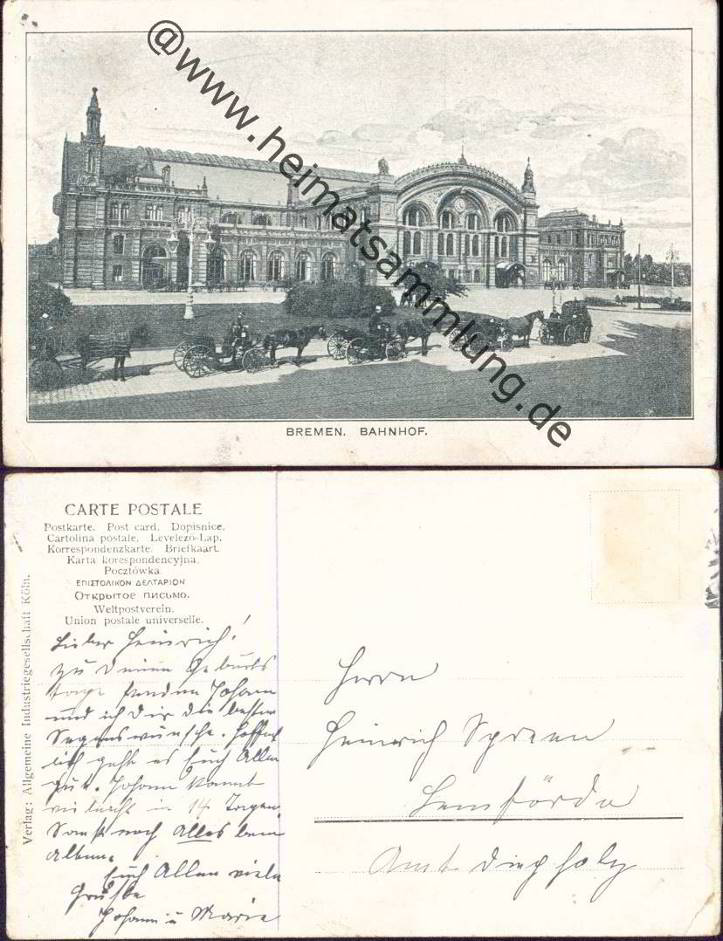 @www.heimatsammlung.de
BREMEN. BAHNHOF.
CARTE POSTALE
Postkarte. Post card. Dopisnice.
Cartolina postale. Levelező-Lap.
Korrespondenzkarte. Briefkaart.
Karta korespondencyjna.
Pocztówka.
ΕΠΙΣΤΟΛΙΚΟΝ ΔΕΛΤΑΡΙΟΝ
Открытое письмо.
Weltpostverein.
Union postale universelle.
Verlag: Allgemeine Industriegesellschaft Köln.
Lieber Heinrich!
zu Deinem Geburts
tage senden Johann
und ich Dir die besten
Segenswünsche. Hoffent
lich geht es Euch Allen
gut. Johann kommt
vielleicht in 14 Tagen.
Sonst noch Alles beim
Alten.
Euch Allen viele
Grüße
Johann u Marie
Herrn
Heinrich Spreen
Lemförde
Amt Diepholz